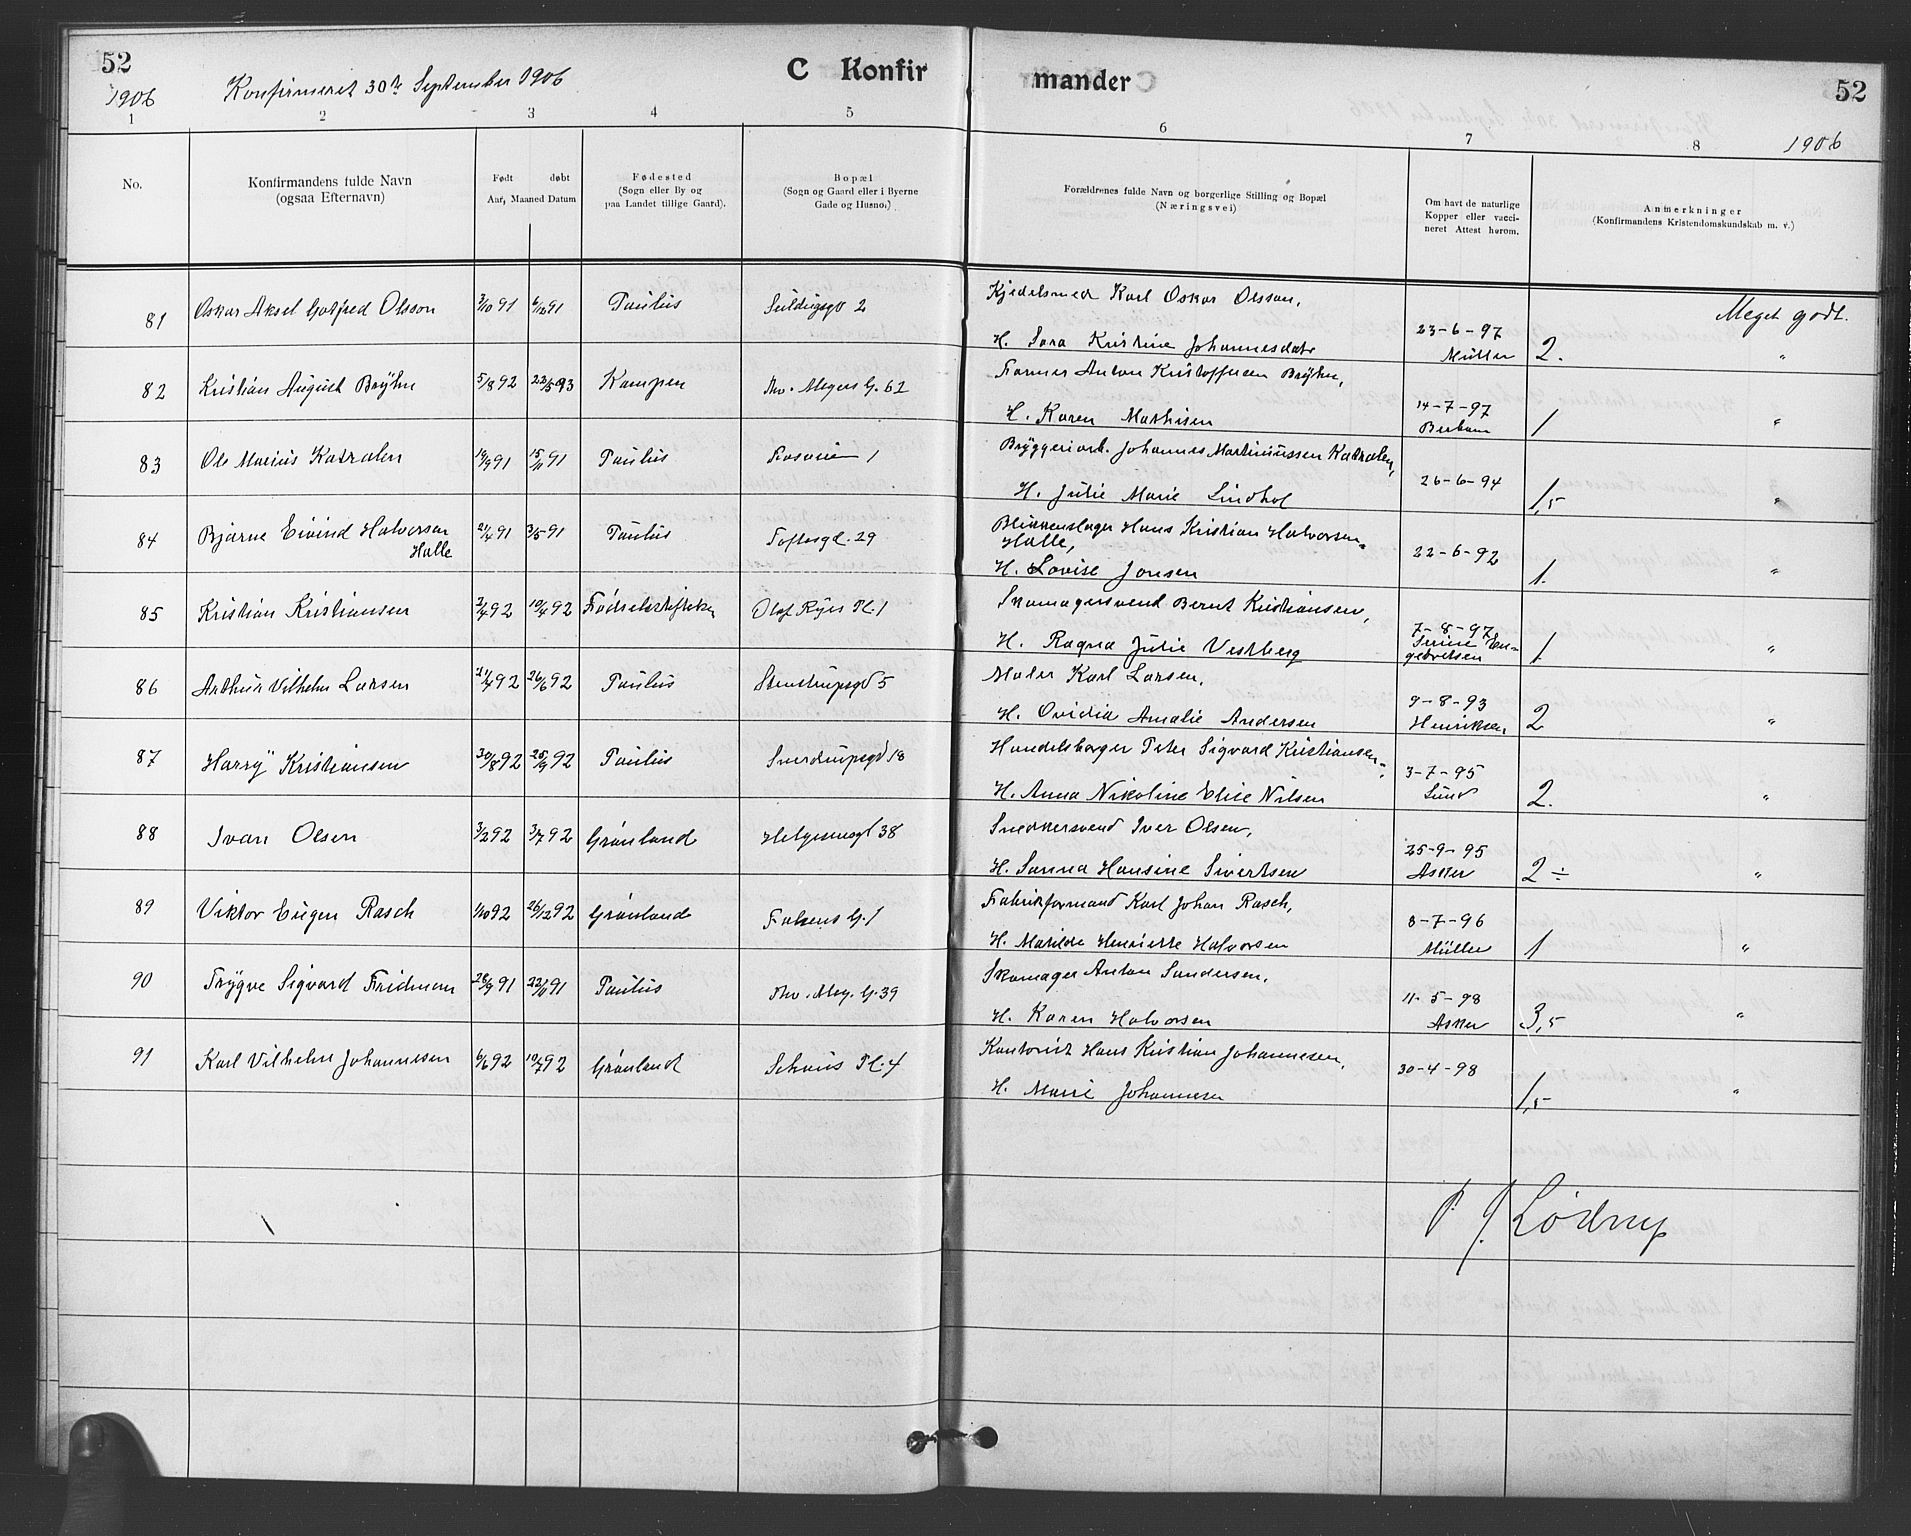 52
1906
Konfirmeret 30te September 1906
C Konfir
mander
52
1906
1 2 3 4 5 6 7 8
No.
Konfirmandens fulde Navn
(ogsaa Efternavn)
Født døbt
Aar, Maaned Datum
Fødested
(Sogn eller By og
paa Landet tillige Gaard).
Bopæl
(Sogn og Gaard eller i Byerne
Gade og Husno.)
Forældrenes fulde Navn og borgerlige Stilling og Bopæl
(Næringsvei)
Om havt de naturlige
Kopper eller vacci-
neret Attest herom.
Anmerkninger
(Konfirmandens Kristendomskundskab m. v.)
81 Oskar Aksel Gotfred Olsson 3/10 91 6/12 91 Paulus 2 Kjedelsmed Karl Oskar Olsson,
H. Sara Kristine Johannesdatr 23-6-97 Müller 2. Meget godt.
82 Kristian August Brÿhn 5/8 92 22/5 93 Kampen Thv. Meyers G. 62 Former Anton Kristoffersen Brÿhn,
H. Karen Mathisen 14-7-97 1 "
83 Ole Marius Katralen 19/9 91 15/11 91 Paulus 1 Brÿggeriarb. Johannes Martinussen Katralen,
H. Julie Marie Lindhol 26-6-94 1,5 "
84 Bjarne Eivind Halvorsen
Halle 21/4 91 3/5 91 Paulus Toftesgd. 29 Blikkenslager Hans Kristian Halvorsen
Halle,
H. Lovise Jonsen 22-6-92 1. "
85 Kristian Kristiansen 2/4 92 10/4 92 Fødselsstiftelsen Olaf Ryes Pl. 1 Skomagersvend Bernt Kristiansen,
H. Ragna Julie Vestberg 7-8-97
Serine En-
gebretsen 1 "
86 Arthur Vilhelm Larsen 21/4 92 26/6 92 Paulus Stenstrupsgd 5 Maler Karl Larsen,
H. Ovidia Amalie Andersen 9-8-93
Henriksen 2 "
87 Harrÿ Kristiansen 30/8 92 25/9 92 Paulus Sverdrupsgd 18 Handelsborger Peter Sigvard Kristiansen,
H. Anna Nikoline Elise Nilsen 3-7-95
Lund 2. "
88 Ivan Olsen 3/2 92 3/7 92 Grønland Helgesensgd 38 Snedkersvend Iver Olsen,
H. Sanna Hansine Sivertsen 25-9-95
Asker 2 ÷ "
89 Viktor Eugen Rasch 1/10 92 26/12 92 Grønland Falsens G. 1 Fabrikformand Karl Johan Rasch,
H. Matilde Henriette Halvorsen 8-7-96
Müller 1 "
90 Trÿgve Sigvard Fridman 28/9 91 22/11 91 Paulus Thv. Mey. G. 39 Skomager Anton Sandersen,
H. Karen Halvorsen 11-5-98
Asker 3,5 "
91 Karl Vilhelm Johannesen 6/6 92 10/7 92 Grønland Schous Pl. 4 Kontorist Hans Kristian Johannesen,
H. Marie Johannesen 30-4-98 1,5 "
P. J. Lødrup